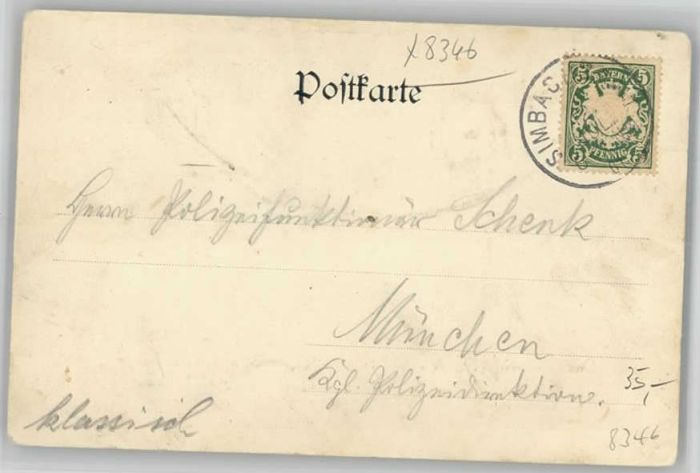 x8346
Postkarte
SIMBAC
5 BAYERN 5
5 PFENNIG 5
Herrn Polizeifunktionär Schenk
München
Kgl. Polizeidirektion.
35,-
klassisch
8346